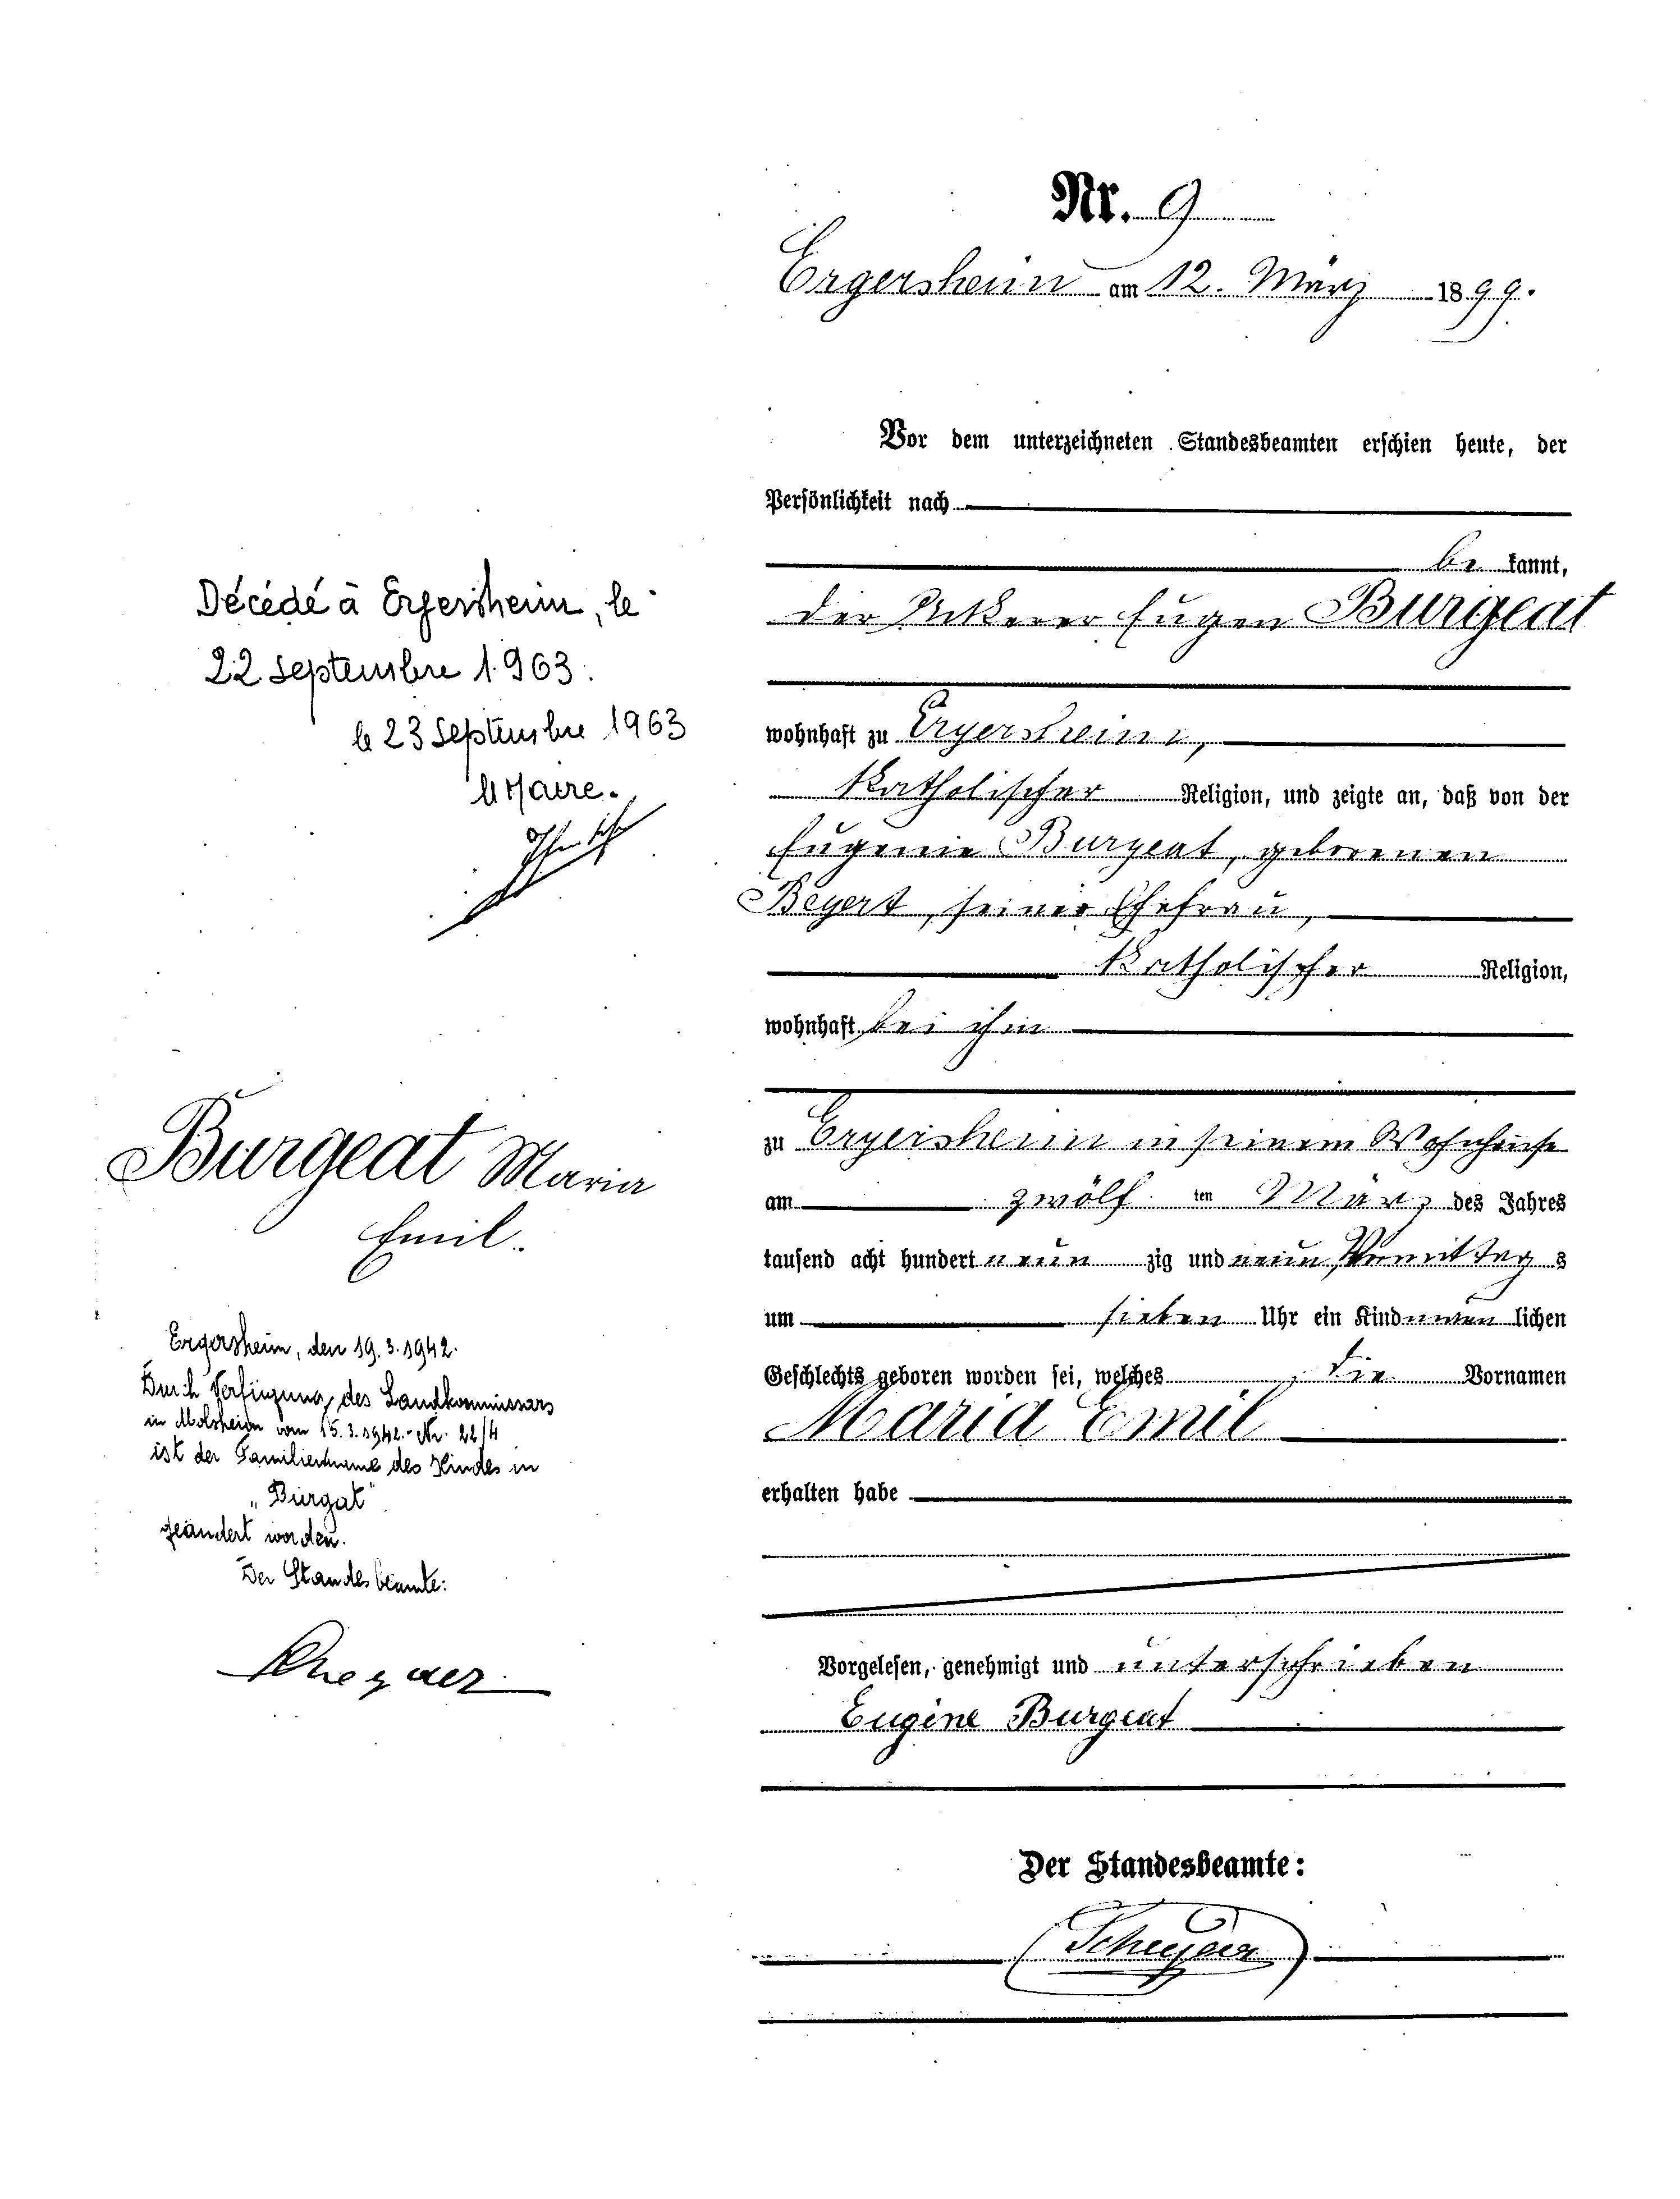 Nr. 9
Ergersheim am 12. März 1899.
Vor dem unterzeichneten Standesbeamten erschien heute, der
Persönlichkeit nach
be kannt,
der Ackerer Eugen Burgeat
wohnhaft zu Ergersheim,
katholischer Religion, und zeigte an, daß von der
Eugenie Burgeat, geborenen
Beyert, seiner Ehefrau,
katholischer Religion,
wohnhaft bei ihm
zu Ergersheim in seinem Wohnhause
am zwölf ten März des Jahres
tausend acht hundert neun zig und neun Vormittag s
um sieben Uhr ein Kind männ lichen
Geschlechts geboren worden sei, welches die Vornamen
Maria Emil
erhalten habe
Vorgelesen, genehmigt und unterschrieben
Eugène Burgeat
Der Standesbeamte:
Décédé à Ergersheim, le
22 septembre 1963.
le 23 septembre 1963
le Maire.
Burgeat Maria
Emil.
Ergersheim, den 19.3.1942.
Durch Verfügung des Landkommissars
in Molsheim vom 15.3.1942.- Nr. 22/4
ist der Familienname des Kindes in
„Burgat"
geändert worden.
Der Standesbeamte: